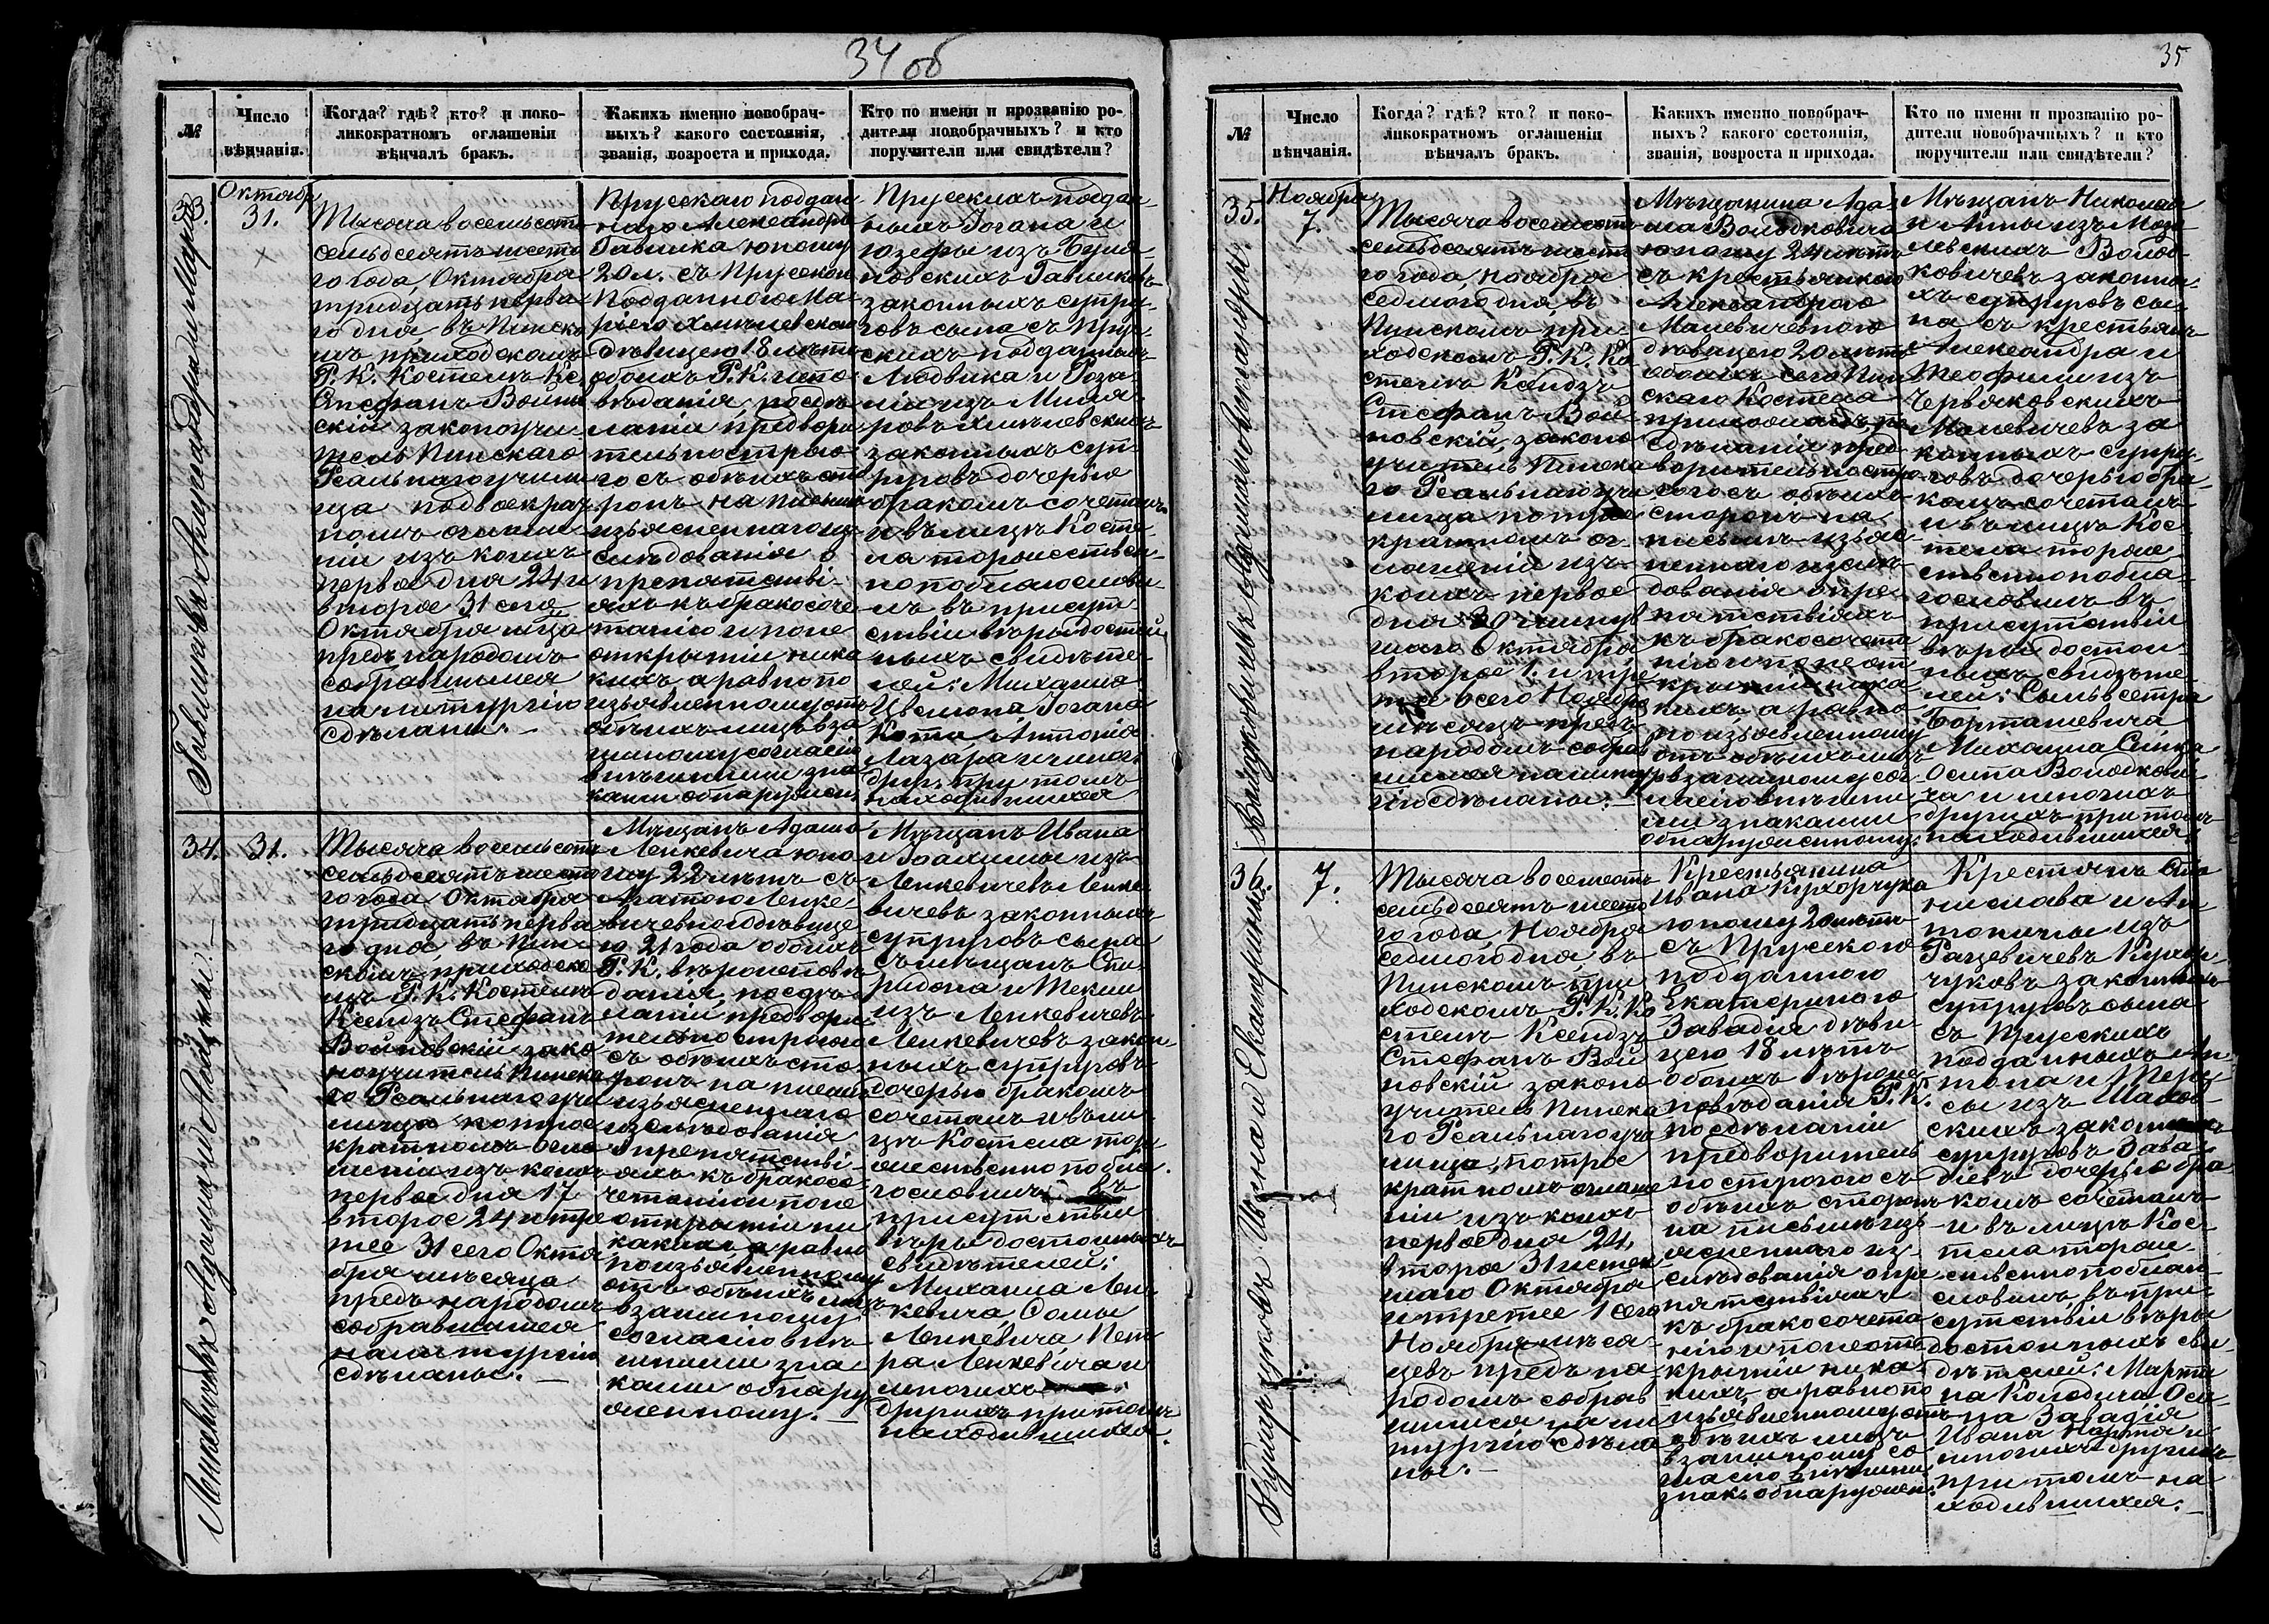 34 об
№
Число
вѣнчанія.
Когда? гдѣ? кто? и поко-
ликократномъ оглашеніи
вѣнчалъ бракъ.
Какихъ именно новобрач-
ныхъ? какого состоянія,
званія, возроста и прихода.
Кто по имени и прозванію ро-
дители новобрачныхъ? и кто
поручители или свидѣтели?
33.
Октября
31.
Тысяча восемьсотъ
семьдесятъ шесто
го года, Октября
тридцать перва
го дня, въ Пинско
мъ приходскомъ
Р. К. Костелѣ Кс.
Стефанъ Война
скій законоучи
тель Пинскаго
Реальнаго учили
ща по двоекрат
номъ оглаше
ніи изъ коихъ
первое дня 24 и
второе 31 сего
Октября м-ца
предъ народомъ
собравшимся
на литургію
сдѣланы.
Прусскаго поддан
наго Александра
юношу
20 л. съ Прусскою
Подданною Ма-
ріею
дѣвицею 18 лѣтъ
обоихъ Р. К. испо
вѣданія, по сдѣ
ланіи предвари
тельно строго
го съ обѣихъ сто
ронъ на письмѣ
изъясненнаго из
слѣдованія о
препятстві-
яхъ къ бракосоче
танію и по не
открытіи ника
кихъ, а равно по
изъявленному отъ
обѣихъ лицъ вза
имному согласію
внѣшними зна
ками обнаружен.
Прусскихъ поддан
ныхъ Іогана и
Юзефы изъ
законныхъ супру-
говъ сына съ Прус
скихъ подданныхъ
Людвика и Роза-
ліи изъ
законныхъ суп-
руговъ дочерью
бракомъ сочеталъ
и въ лицѣ Косте
ла торжествен-
но поблагослови
лъ въ присут-
ствіи вѣры достой
ныхъ свидѣте
лей: Михаила
Іогана
Антонія
Лазара и многи
друг. при томъ
находившихся
34.
31.
Ленкевичъ Адамъ и Агата
Тысяча восемьсотъ
семьдесятъ шесто
го года Октября
тридцать перва
го дня, въ Пин
скомъ приходско
мъ Р. К. Костелѣ
Ксендзъ Стефанъ
Войновскій зако
ноучитель Пинска
го Реальнаго учи
лища по трое
кратномъ огла
шеніи изъ коихъ
первое дня 17
второе 24 и тре
тее 31 сего Октя
бря мѣсяца
предъ народомъ
собравшимся
на литургію
сдѣланы.
Мѣщанъ Адама
Ленкевича юно
шу 22 лѣтъ съ
Агатою Ленке
вичевною дѣвице
ю 21 года обоихъ
Р. К. вѣроисповѣ
данія, по сдѣ
ланіи предвари
тельно строгаго
съ обѣихъ сто
ронъ на письмѣ
изъясненнаго
изслѣдованія
о препятстві-
яхъ къ бракосо
четанію и по не
открытіи ни
какихъ, а равно
по изъявленному
отъ обѣихъ лицъ
взаимному
согласію внѣ
шними зна
ками обнару
женному.
Мѣщанъ Ивана
и Іоахимы изъ
Ленкевичевъ Ленке
вичевъ законныхъ
супруговъ сына
съ мѣщанъ Спи
ридона и Теклии
изъ Ленкевичевъ
Ленкевичевъ закон
ныхъ супруговъ
дочерью бракомъ
сочеталъ и въ ли
цѣ Костела тор
жественно побла
гословилъ въ
присутствіи
вѣры достойныхъ
свидѣтелей:
Михаила Лен
кевича, Фомы
Ленкевича, Пет
ра Ленкевича и
многихъ
другихъ при томъ
находившихся.
35
№
Число
вѣнчанія.
Когда? гдѣ? кто? и поко-
ликократномъ оглашеніи
вѣнчалъ бракъ.
Какихъ именно новобрач-
ныхъ? какого состоянія,
званія, возроста и прихода.
Кто по имени и прозванію ро-
дители новобрачныхъ? и кто
поручители или свидѣтели?
35.
Ноября
7.
Володковичъ Адамъ и Александра
Тысяча восемьсотъ
семьдесятъ шесто
го года, Ноября
седмого дня, въ
Пинскомъ при-
ходскомъ Р. К. Ко
стелѣ Ксендзъ
Стефанъ Вой-
новскій, законо
учитель Пинска
го Реальнаго учи
лища по трое
кратномъ ог-
лашеніи изъ
коихъ первое
дня
шаго Октября
второе 1. и тре
тее сего Ноября
мѣсяцъ предъ
народомъ собрав
шимся на литур
гію сдѣланы.
Мѣщанина Ада
ма Володковича
юношу 24 лѣтъ
съ крестьянкою
Александрою
Малевичевною
дѣвицею 20 лѣтъ
обоихъ сего Пин
скаго Костела
прихожанъ, по
сдѣланіи пред
варительно стро
гаго съ обѣихъ
сторонъ на
письмѣ изъяс
неннаго изслѣ
дованія о пре
пятствіяхъ
къ бракосочета
нію и по неот
крытіи ника
кихъ, а равно
по изъявленному
отъ обѣихъ лицъ
взаимному сог
ласію внѣшни
ми знаками
обнаруженному.
Мѣщанъ Николая
и Анны изъ Мози
левскихъ Волод-
ковичевъ законны-
хъ супруговъ сы
на съ крестьянъ
Александра и
Теофили изъ
Червяковскихъ
Малевичевъ за
конныхъ супру
говъ дочерью бра
комъ сочеталъ
и въ лицѣ Кос
тела торже
ственно побла
гословилъ въ
присутствіи
вѣры достой
ныхъ свидѣте
лей: Сильвестра
Борташевича
Михаила
Осипа Володкови
ча и многихъ
другихъ при томъ
находившихся.
36.
7.
Кухарчуковъ Ивана и Екатерины
Тысяча восемьсотъ
семьдесятъ шесто
го года, Ноября
седмого дня, въ
Пинскомъ при
ходскомъ Р. К. Ко
стелѣ Ксендзъ
Стефанъ Вой
новскій законо
учитель Пинска
го Реальнаго учи
лища, по трое
кратномъ оглаше
ніи изъ коихъ
первое дня 24,
второе 31 истек
шаго Октября
и третее 1 сего
Ноября мѣся-
цевъ предъ на
родомъ собрав
шимся на ли
тургію сдѣла
ны.
Крестьянина
Ивана Кухорчука
юношу 20 лѣтъ
съ Прусскою
подданною
Екатериною
Завадія дѣви
цею 18 лѣтъ
обоихъ вѣроис
повѣданія Р. К.
по сдѣланіи
предваритель
но строгого съ
обѣихъ сторонъ
на письмѣ изъ
ясненнаго из
слѣдованія о пре
пятствіяхъ
къ бракосочета
нію и по неот
крытіи ника
кихъ, а равно по
изъявленному отъ
обѣихъ лицъ
взаимному со
гласію внѣшни.
знак. обнаружен.
Крестьянъ Ста
нислава и Ан
тонины изъ
Рацевичевъ Кухар
чуковъ законныхъ
супруговъ сына
съ Прусскихъ
подданныхъ Ан
тона и Тере
сы изъ
скихъ законныхъ
супруговъ Зава
діевъ дочерью бра
комъ сочеталъ
и въ лицѣ Кос-
тела торже-
ственно поблаг
ословилъ, въ при
сутствіи вѣры
достойныхъ сви
дѣтелей: Марти
на Колодича, Оси
па Завадія
Ивана и
многихъ другихъ
при томъ на
ходившихся.